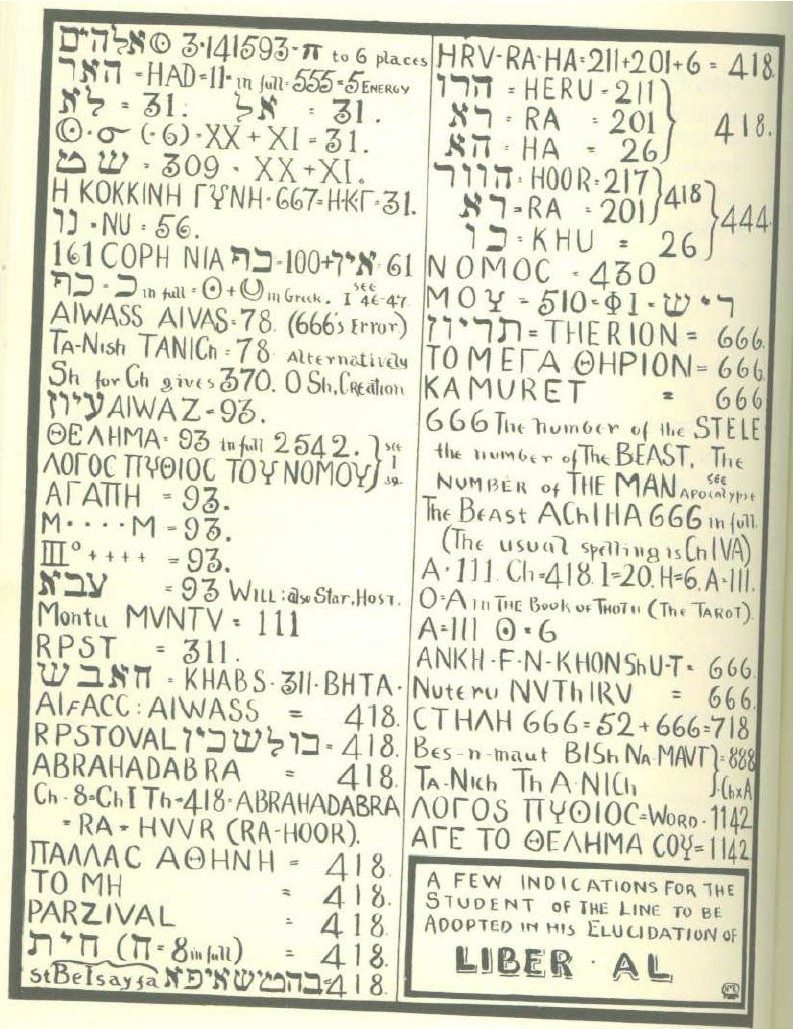 אלהים ☉ 3·141593-π to 6 places
האד = HAD = 11 - in full = 555 = 5 ENERGY
לא = 31. אל = 31.
☉·σ (·6)·XX + XI = 31.
שט = 309 · XX+XI.
Η ΚΟΚΚΙΝΗ ΓΥΝΗ·667=Η·Κ·Γ=31.
נו · NU = 56.
161 COPH NIA כף=100+אין 61
כף = כ in full = ☉ + in Greek. see I 46-47
AIWASS AIVAS=78. (666's Error)
TA-Nish TANICh = 78 Alternatively
Sh for Ch gives 370. O Sh, Creation
עיוז AIWAZ = 93.
ΘΕΛΗΜΑ = 93 in full 2542. } see
ΛΟΓΟC ΠΥΘΙΟC ΤΟΥ ΝΟΜΟΥ } I 39.
ΑΓΑΠΗ = 93.
M · · · · M = 93.
III° ++++ = 93.
עבא = 93 WILL: also Star, Host.
Montu MVNTV = 111
RPST = 311.
האבש = KHABS · 311 · BHTA ·
AIFACC : AIWASS = 418.
RPSTOVAL = 418.
ABRAHADABRA = 418.
Ch = 8 = Ch I Th = 418 = ABRAHADABRA
= RA = HVVR (RA-HOOR).
ΠΑΛΛΑC ΑΘΗΝΗ = 418.
ΤΟ ΜΗ = 418.
PARZIVAL = 418.
חית (ח = 8 in full) = 418.
= 418.
HRV-RA-HA = 211+201+6 = 418.
הרו = HERU = 211 }
רא = RA = 201 } 418.
הא = HA = 26 }
הוור = HOOR = 217 } 418
רא = RA = 201 } } 444.
כו = KHU = 26 }
ΝΟΜΟC = 430
ΜΟΥ = 510 = ΦΙ = ריש
תריון = THERION = 666.
ΤΟ ΜΕΓΑ ΘΗΡΙΟΝ = 666.
KAMURET = 666
666 The number of the STELE
the number of The BEAST. The
NUMBER of THE MAN see APOCALYPSE
The Beast AChIHA 666 in full.
(The usual spelling is ChIVA)
A = 111. Ch = 418. I = 20. H = 6. A = 111.
O = A in THE BOOK OF THOTH (The TAROT).
A = 111 ☉ = 6
ANKH·F·N·KHONShU-T = 666.
Nuteru NVThIRV = 666.
CΤΗΛΗ 666 = 52 + 666 = 718
Bes-n-maut BISh NA-MAVT } = 888
TA-Nich Th A·NICh } = ChxA
ΛΟΓΟS ΠΥΘΙΟC = WORD · 1142
ΑΓΕ ΤΟ ΘΕΛΗΜΑ CΟΥ = 1142
A FEW INDICATIONS FOR THE
STUDENT OF THE LINE TO BE
ADOPTED IN HIS ELUCIDATION OF
LIBER · AL